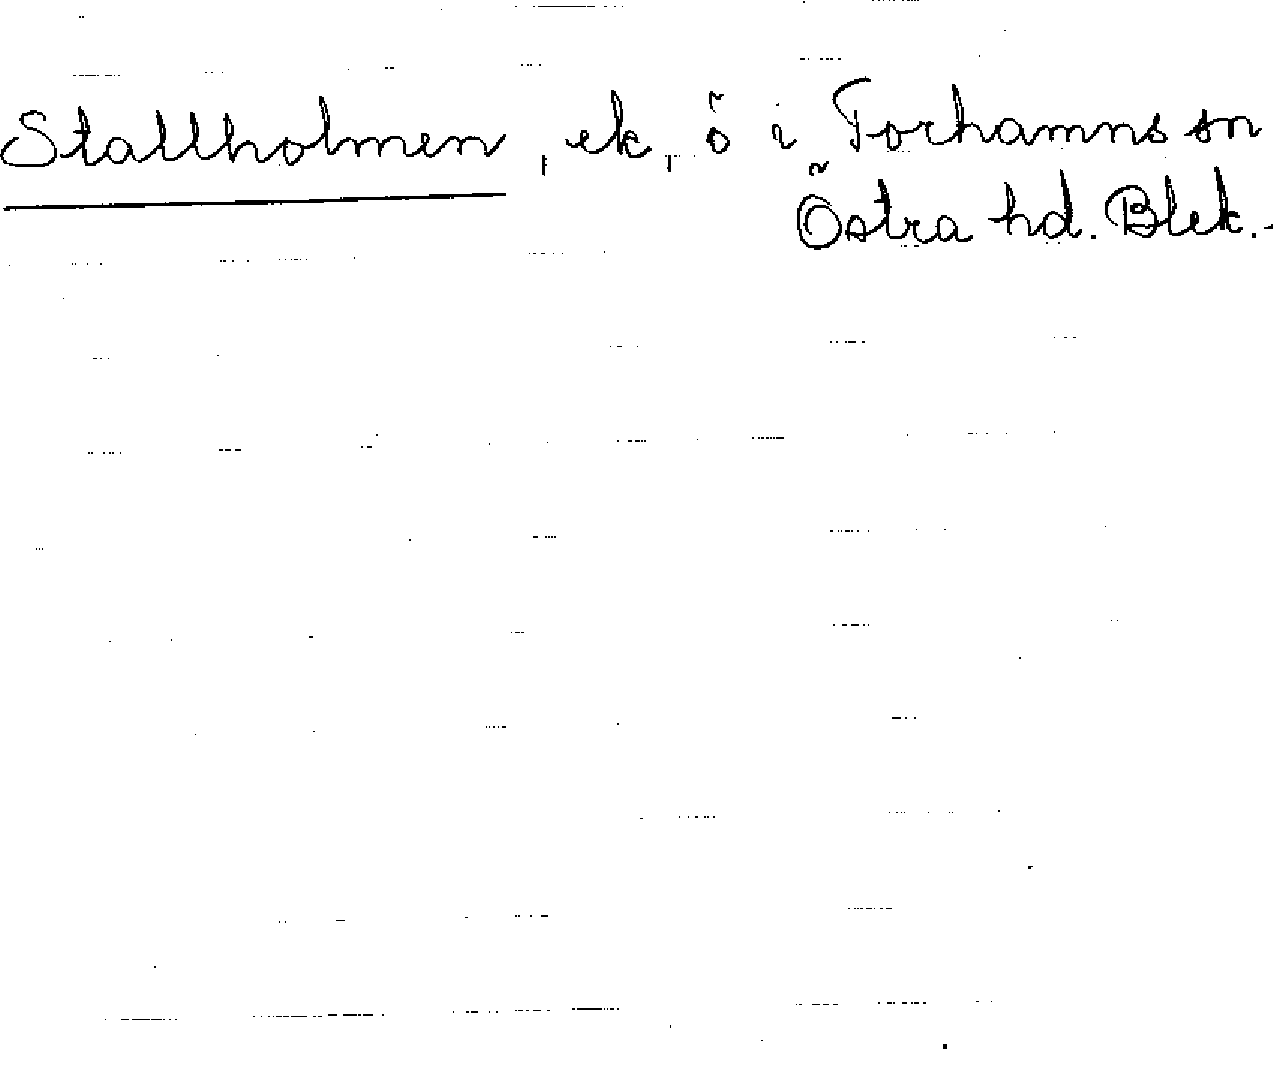 Stallholmen, ek, ö i Torhamns sn
Östra hd. Blek.